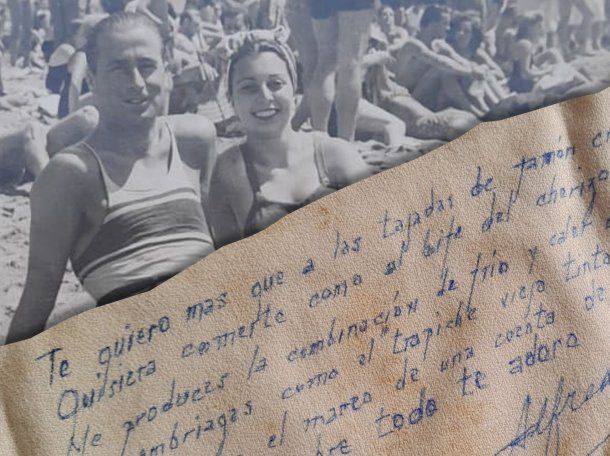 Te quiero mas que a las tajadas de jamón
Quisiera comerte como al bife del chorizo
Me produces la combinación de frío y calor
embriagas como el "trapiche viejo" tinto
el mareo de una cuenta de
bre todo te adoro
Alfred